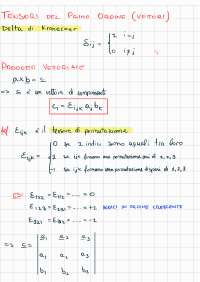 TENSORI DEL PRIMO ORDINE (VETTORI)
Delta di Kronecker
δij = { 1 i=j
0 i≠j
PRODOTTO VETTORIALE
a x b = c
=> c è un vettore di componenti
ci = Eijk aj bk
Eijk è il tensore di permutazione
Eijk = { 0 se 2 indici sono uguali tra loro
1 se ijk formano una permutazione pari di 1,2,3
-1 se ijk formano una permutazione dispari di 1,2,3
E112 = E122 = ..... = 0
E123 = E231 = ..... = +1
E321 = ..... = -1
=> c = | e1 e2 e3 |
a1 a2 a3
b1 b2 b3